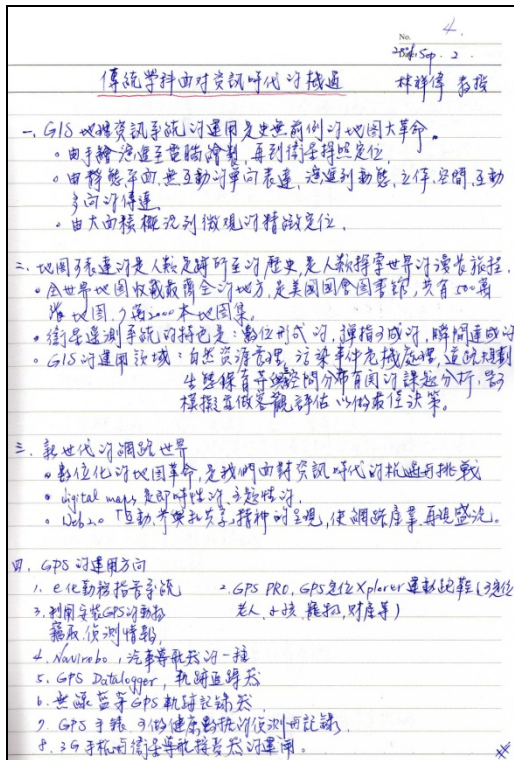 No. 4.
Sep. 2.
傳統學科面对資訊時代的機遇
林祥偉 教授
一、GIS 地理資訊系統的運用是史無前例的地图大革命。
• 由手繪演進至電腦繪製,再到衛星得照定位,
• 由靜態,平面,無互動的單向表達,演進到動態,立体,空間,互動
多向的傳達
• 由大面積概況到微觀的精緻定位.
二、地图可表達的是人類足跡所至的歷史,是人類探索世界的漫長旅程.
• 全世界地图收載最齊全的地方,是美國國會图書館,共有500萬
張地图,及2000本地图集。
• 衛星遙測系統的特色是:數位形式的,彈指可成的,瞬間達成的
• GIS的運用領域:自然資源管理,污染事件危機處理,道路規劃
生態保育等與空間分布有関的課題分析,
模擬並做客觀評估以做最佳決策。
三、新世代的網路世界
• 數位化的地图革命,是我們面對資訊時代的机遇與挑戰
• digital maps 是即時性的,主題性的.
• Web2.0 「互動,參與和共享」精神的呈現,使網路產業再現盛況。
四、GPS的運用方向
1. e化動物指音系統
2. GPS PRO, GPS定位Xplorer運動跑鞋(可定位
老人,小孩,寵物,財產等)
3. 利用安裝GPS的動物
竊取偵測情報,
4. Navirobo,汽車導航器的一種
5. GPS Datalogger,軌跡追蹤器
6. 無線藍芽GPS軌跡記錄器
7. GPS手錶可做健康數據的偵測與記錄.
8. 3G手机與衛星導航接受器的運用。